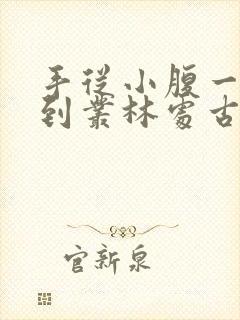 手从小腹一
到叢林處古
官新泉